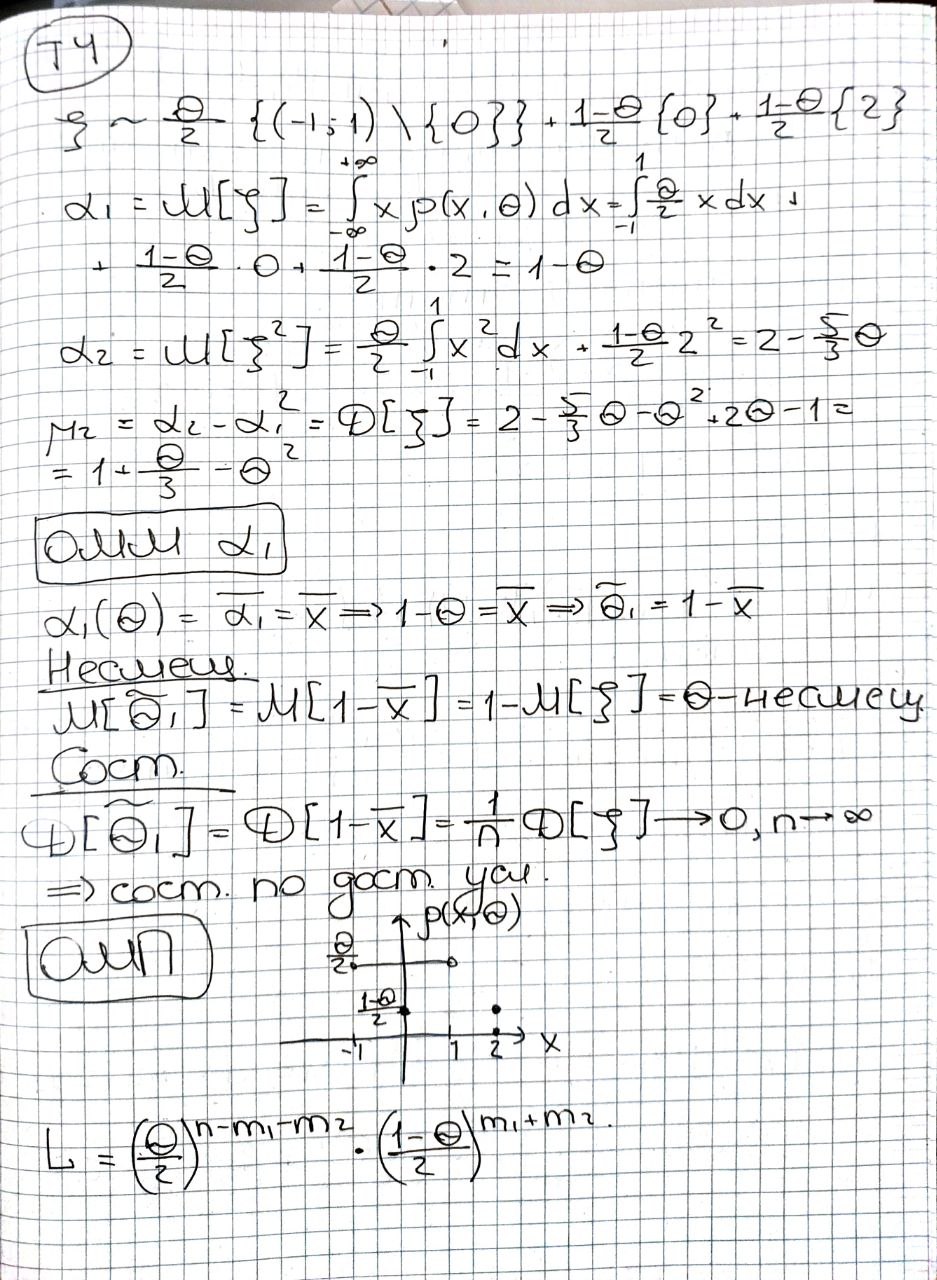 T4
ξ ~ θ/2 {(-1;1) \ {0}} + 1-θ/2 {0} + 1-θ/2 {2}
α₁ = M[ξ] = ∫_{-∞}^{+∞} x p(x,θ) dx = ∫_{-1}^{1} θ/2 x dx +
+ 1-θ/2 · 0 + 1-θ/2 · 2 = 1-θ
α₂ = M[ξ²] = θ/2 ∫_{-1}^{1} x² dx + 1-θ/2 2² = 2 - 5/3 θ
μ₂ = α₂ - α₁² = D[ξ] = 2 - 5/3 θ - θ² + 2θ - 1 =
= 1 + θ/3 - θ²
ОММ α₁
α₁(θ) = α̅₁ = x̅ ⟹ 1-θ = x̅ ⟹ θ̃₁ = 1 - x̅
Несмещ.
M[θ̃₁] = M[1-x̅] = 1-M[ξ] = θ - несмещ.
Сост.
D[θ̃₁] = D[1-x̅] = 1/n D[ξ] → 0, n → ∞
⟹ сост. по дост. усл.
ОМП
p(x,θ)
θ/2
1-θ/2
-1 1 2 x
L = (θ/2)^{n-m₁-m₂} · (1-θ/2)^{m₁+m₂}.